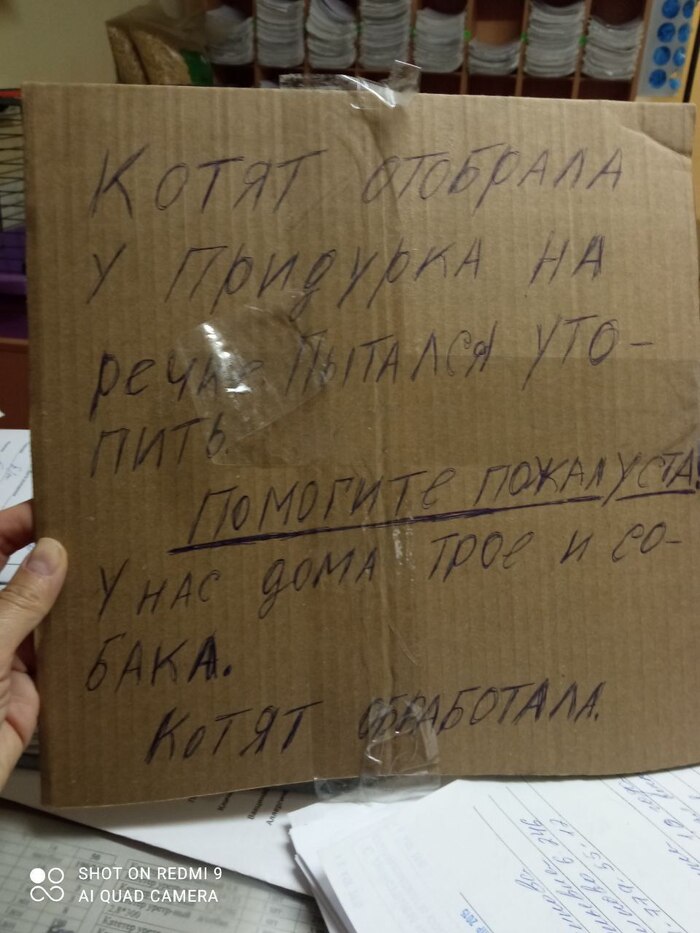 Котят отобрала
у придурка на
речке пытался уто-
пить.
Помогите пожалуста!
У нас дома трое и со-
бака.
Котят обработала.
SHOT ON REDMI 9
AI QUAD CAMERA